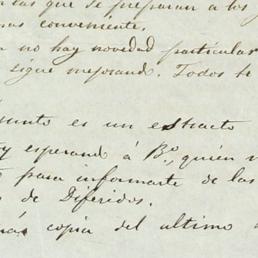 tas que se preparan a los
mas conveniente.
no hay novedad particular
sigue mejorand. Todos te
junto es un estracto
y esperando á B.º, quién
para informarte de las
s de Diferidos.
más copia del ultimo